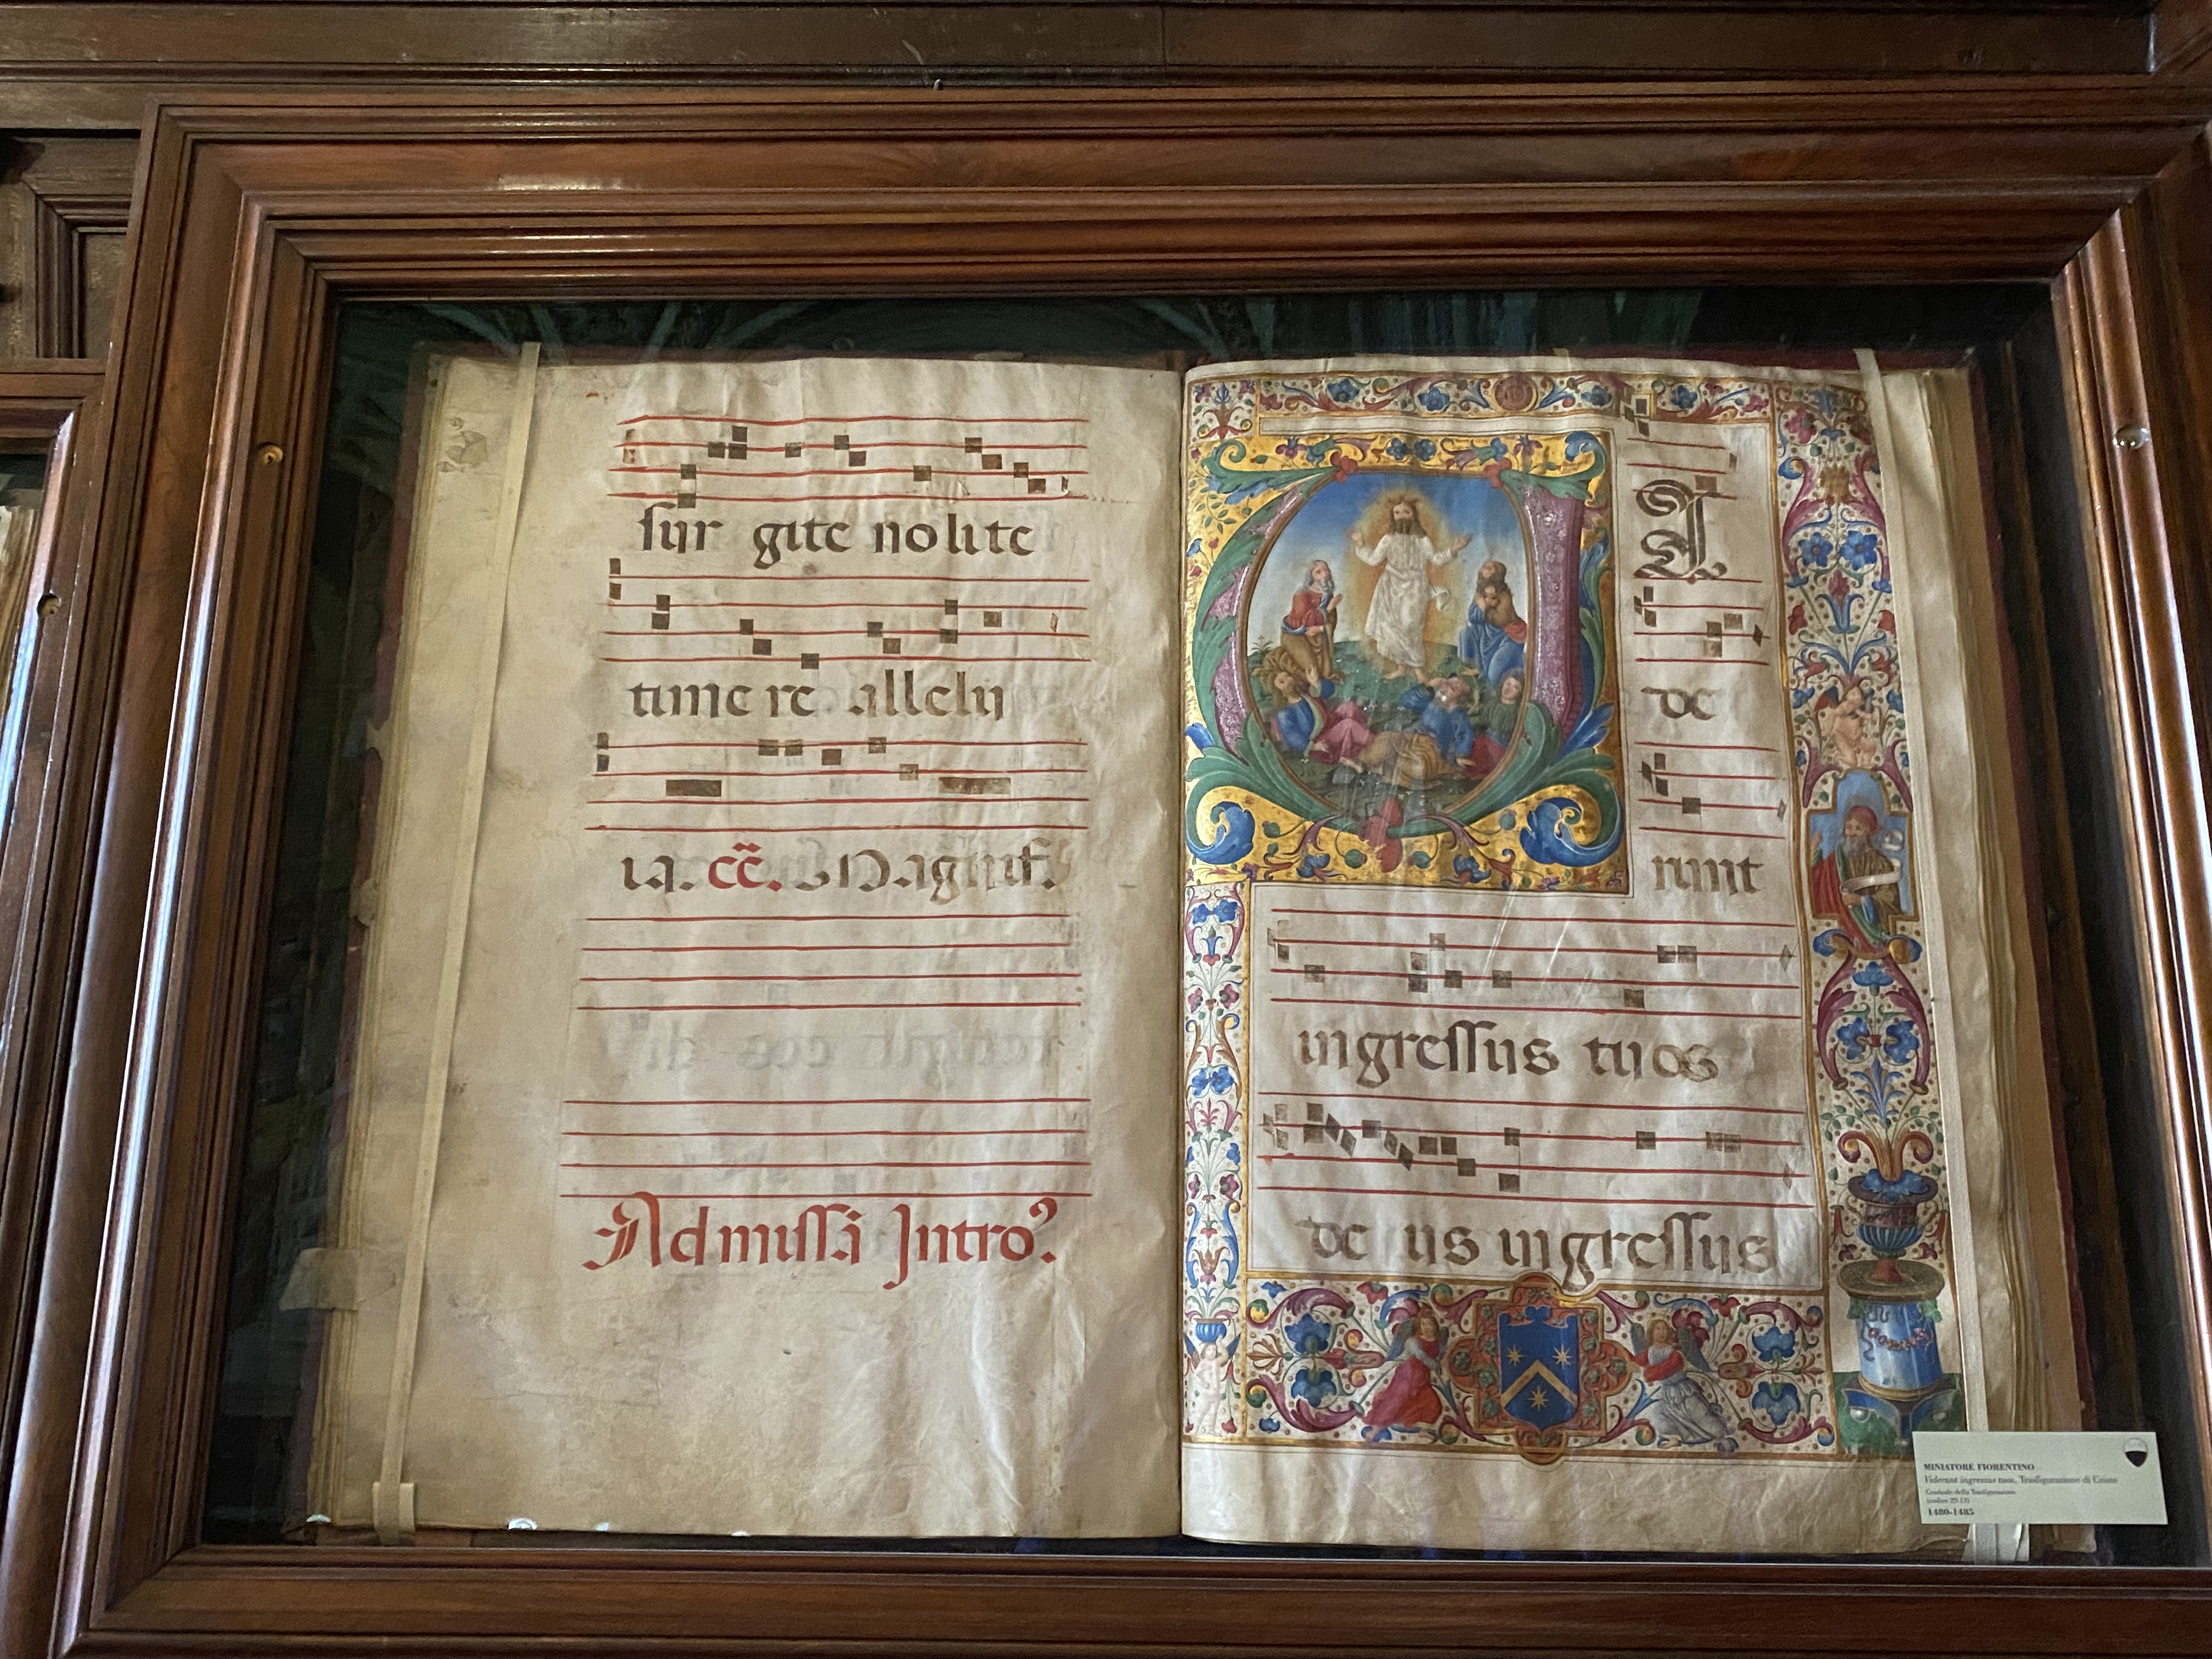 sur gite nolite
time re allelu
ia. cc. Magnif.
Ad missā Intro?
I
de
runt
ingressus tuos
de us ingressus
MINIATORE FIORENTINO
Viderunt ingressus tuos, Trasfigurazione di Cristo
Graduale della Trasfigurazione
(codice 29.13)
1480-1485